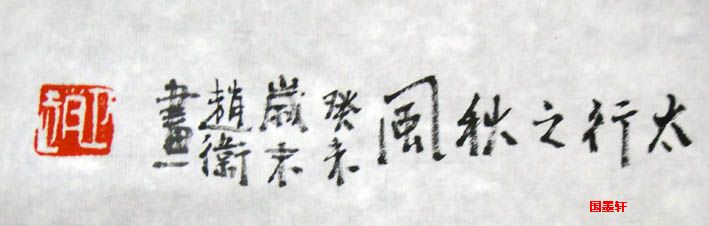 太行之秋風
癸未
歲末
趙衛
畫
国墨轩